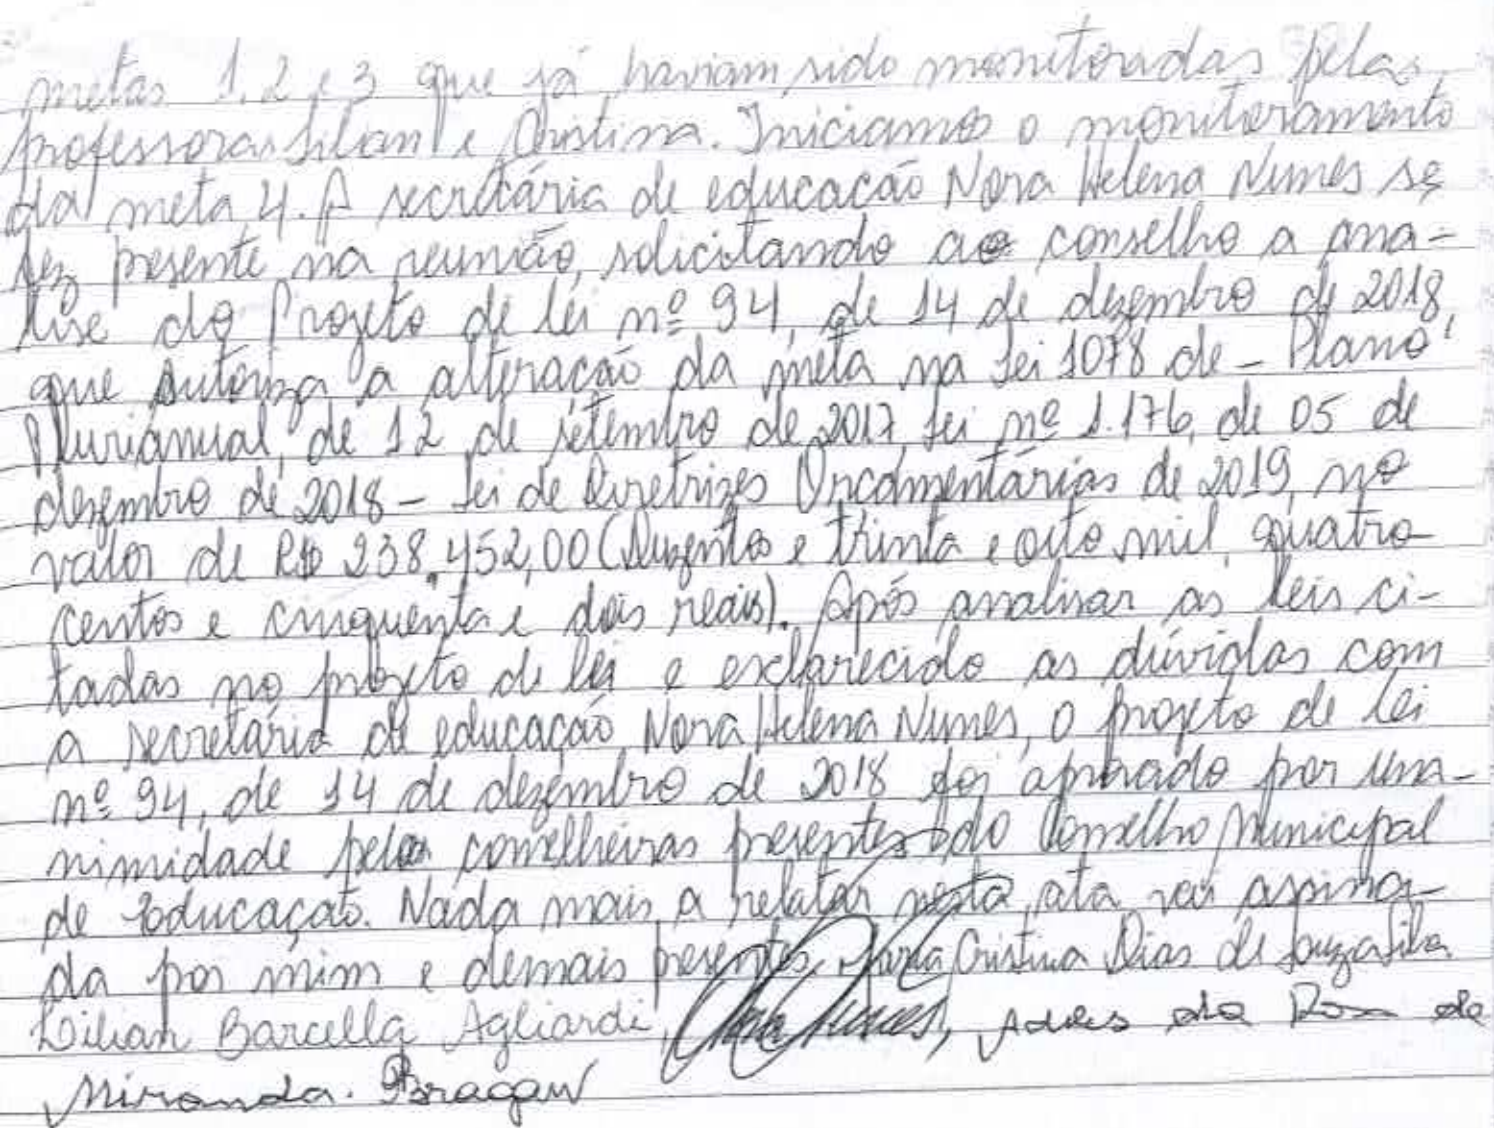 metas 1, 2 e 3 que já haviam sido monitoradas pelas
professoras Lilian e Cristina. Iniciamos o monitoramento
da meta 4. A secretária de educação Nora Helena Nunes se
fez presente na reunião, solicitando ao conselho a aná-
lise do Projeto de lei nº 94, de 14 de dezembro de 2018,
que autoriza a alteração da meta na Lei 1078 de - Plano
Plurianual, de 12 de setembro de 2017, Lei nº 1.176, de 05 de
dezembro de 2018 - Lei de Diretrizes Orçamentárias de 2019, no
valor de R$ 238.452,00 (Duzentos e trinta e oito mil, quatro-
centos e cinquenta e dois reais). Após analisar as leis ci-
tadas no projeto de lei e esclarecido as dúvidas com
a secretária de educação Nora Helena Nunes, o projeto de lei
nº 94, de 14 de dezembro de 2018 foi aprovado por una-
nimidade pelas conselheiras presentes do Conselho Municipal
de Educação. Nada mais a relatar nesta ata vai assina-
da por mim e demais presentes. Maria Cristina Dias de Souza Silva
Lilian Barcella Agliardi, Nora Nunes, da Rosa de
Miranda.